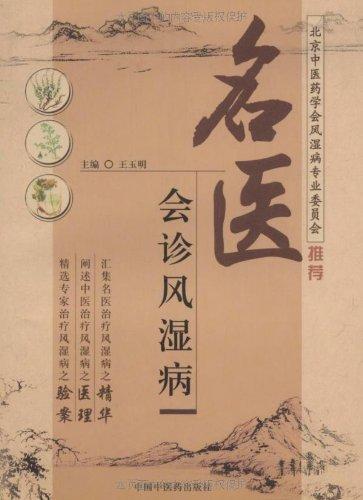 此内容受版权保护
北京中医药学会风湿病专业委员会
推荐
名医
主编 〇 王玉明
会诊风湿病
汇集名医治疗风湿病之精华
阐述中医治疗风湿病之医理
精选专家治疗风湿病之验案
中国中医药出版社